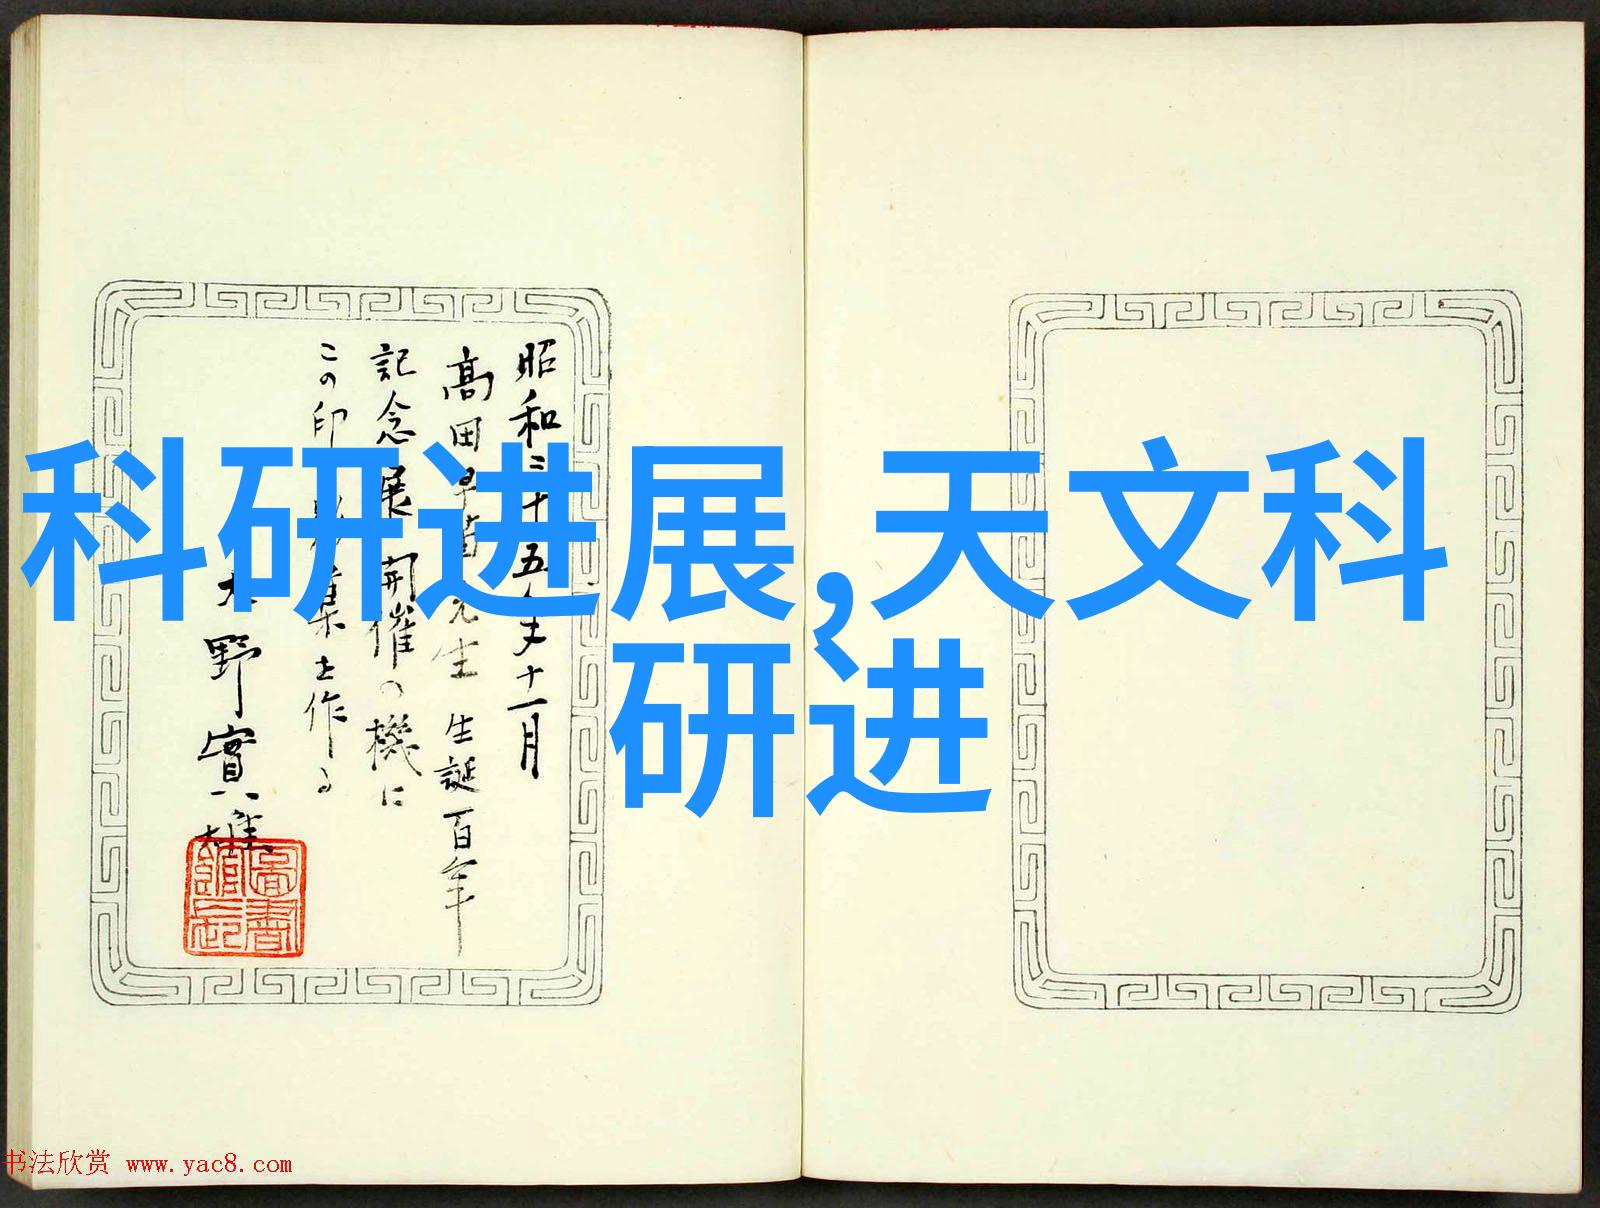 昭和二十五年十一月
高田早苗先生 生誕百年
記念展開催の機に
この印 集を作る
野實雄
圖書
館長
科研进展,天文科
研进
书法欣赏 www.yac8.com